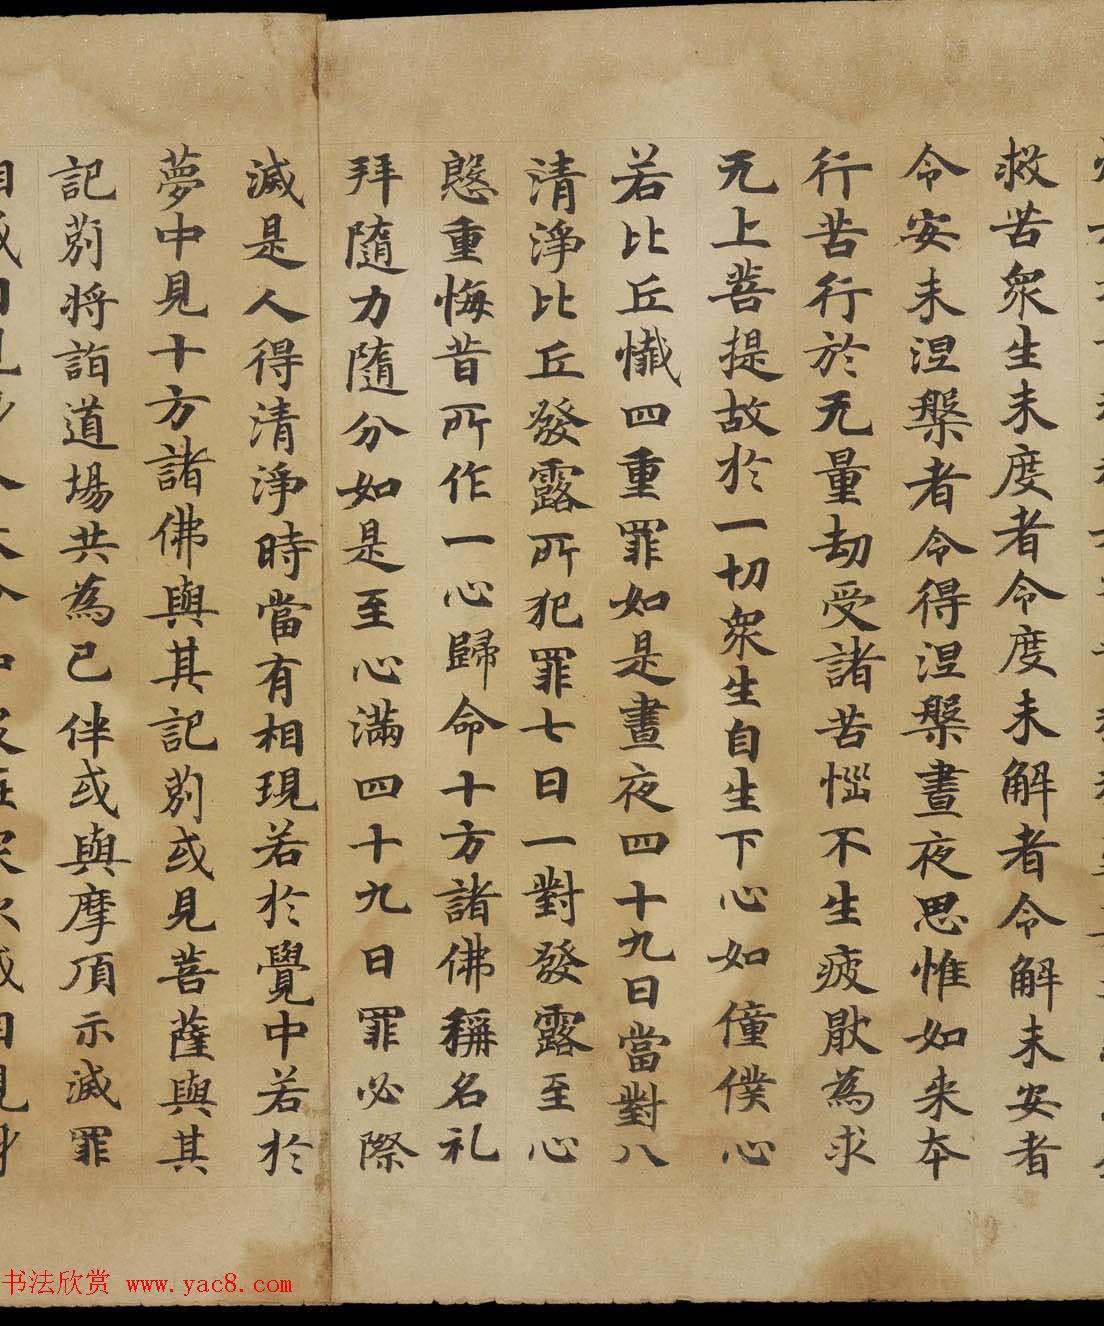 救苦衆生未度者令度未解者令解未安者
令安未涅槃者令得涅槃晝夜思惟如来本
行苦行於无量劫受諸苦惱不生疲厭為求
无上菩提故於一切衆生自生下心如僮僕心
若比丘懴四重罪如是晝夜四十九日當對八
清淨比丘發露所犯罪七日一對發露至心
慇重悔昔所作一心歸命十方諸佛稱名礼
拜隨力隨分如是至心滿四十九日罪必際
滅是人得清淨時當有相現若於覺中若於
夢中見十方諸佛與其記莂或見菩薩與其
記莂将詣道場共為己伴或與摩頂示滅罪
书法欣赏 www.yac8.com